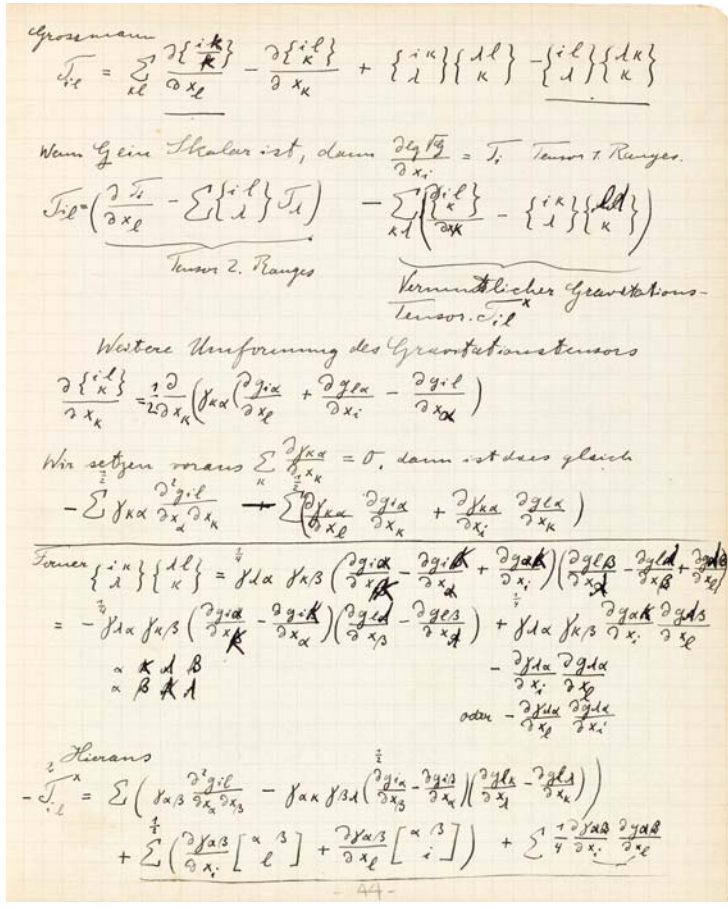 Grossmann
T_{il} = \sum_{κl} \frac{∂{iκ \atop κ}}{∂x_l} - \frac{∂{il \atop κ}}{∂x_κ} + {iκ \atop λ}{λl \atop κ} - {il \atop λ}{λκ \atop κ}
Wenn G ein Skalar ist, dann \frac{∂lg√g}{∂x_i} = T_i Tensor 1. Ranges.
T_{il} = (\frac{∂T_i}{∂x_l} - \sum {il \atop λ} T_λ) - \sum_{κλ} (\frac{∂{il \atop κ}}{∂x_κ} - {iκ \atop λ}{λl \atop κ})
Tensor 2. Ranges
Vermutlicher Gravitations-
Tensor. T_{il}^x
Weitere Umformung des Gravitationstensors
\frac{∂{il \atop κ}}{∂x_κ} = \frac{1}{2} \frac{∂}{∂x_κ} (γ_{κα} (\frac{∂g_{iα}}{∂x_l} + \frac{∂g_{lα}}{∂x_i} - \frac{∂g_{il}}{∂x_α})
Wir setzen voraus \sum_κ \frac{∂γ_{κα}}{∂x_κ} = 0, dann ist dies gleich
- \frac{1}{2} \sum γ_{κα} \frac{∂^2 g_{il}}{∂x_α ∂x_κ} - \frac{1}{2} \sum (\frac{∂γ_{κα}}{∂x_l} \frac{∂g_{iα}}{∂x_κ} + \frac{∂γ_{κα}}{∂x_i} \frac{∂g_{lα}}{∂x_κ})
Ferner {iκ \atop λ}{λl \atop κ} = \frac{1}{4} γ_{λα} γ_{κβ} (\frac{∂g_{iα}}{∂x_κ} - \frac{∂g_{iκ}}{∂x_α} + \frac{∂g_{ακ}}{∂x_i})(\frac{∂g_{lβ}}{∂x_λ} - \frac{∂g_{lλ}}{∂x_β} + \frac{∂g_{λβ}}{∂x_l})
= - \frac{1}{4} γ_{λα} γ_{κβ} (\frac{∂g_{iα}}{∂x_κ} - \frac{∂g_{iκ}}{∂x_α})(\frac{∂g_{lλ}}{∂x_β} - \frac{∂g_{lβ}}{∂x_λ}) + \frac{1}{4} γ_{λα} γ_{κβ} \frac{∂g_{ακ}}{∂x_i} \frac{∂g_{λβ}}{∂x_l}
α κ λ β
α β κ λ
- \frac{∂γ_{λα}}{∂x_i} \frac{∂g_{λα}}{∂x_l}
oder - \frac{∂γ_{λα}}{∂x_l} \frac{∂g_{λα}}{∂x_i}
Hieraus
- 2 T_{il}^x = \sum (γ_{αβ} \frac{∂^2 g_{il}}{∂x_α ∂x_β} - \frac{1}{2} γ_{ακ} γ_{βλ} (\frac{∂g_{iα}}{∂x_β} - \frac{∂g_{iβ}}{∂x_α})(\frac{∂g_{lκ}}{∂x_λ} - \frac{∂g_{lλ}}{∂x_κ}))
+ \frac{1}{2} \sum (\frac{∂γ_{αβ}}{∂x_i} [αβ \atop l] + \frac{∂γ_{αβ}}{∂x_l} [αβ \atop i]) + \sum \frac{1}{4} \frac{∂γ_{αβ}}{∂x_i} \frac{∂g_{αβ}}{∂x_l}
- 44 -